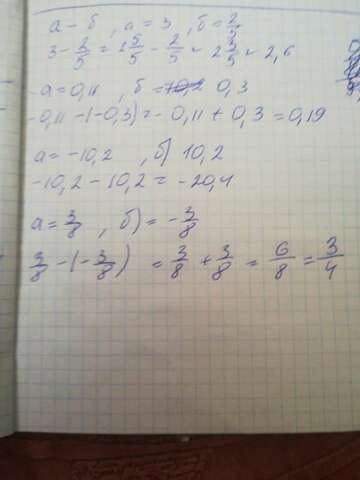 а - б, а = 3, б = 2/5
3 - 2/5 = 2 5/5 - 2/5 = 2 3/5 = 2,6
-а = 0,11, б = 0,3
-0,11 - (-0,3) = - 0,11 + 0,3 = 0,19
а = -10,2, б) 10,2
-10,2 - 10,2 = -20,4
а = 3/8, б) = - 3/8
3/8 - (- 3/8) = 3/8 + 3/8 = 6/8 = 3/4